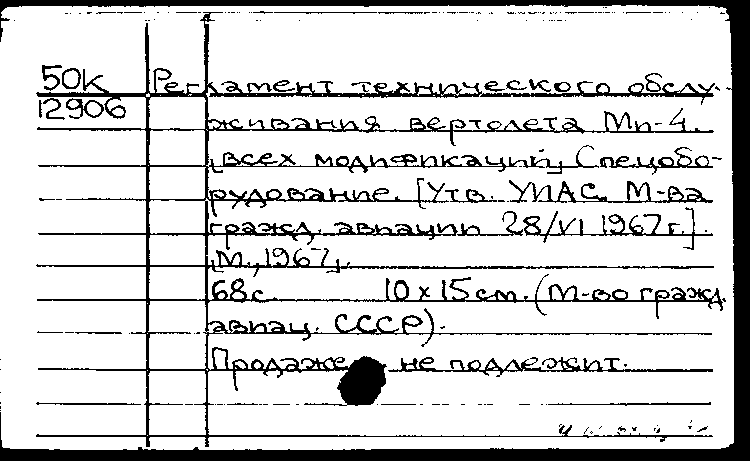 50К Регламент технического обслу-
12906 живания вертолета Ми-4.
[всех модификаций] Спецобо-
рудование. [Утв. УИАС М-ва
гражд. авиации 28/VI 1967г.].
[М., 1967].
68с. 10х15см. (М-во гражд.
авиац. СССР).
Продаже не подлежит.